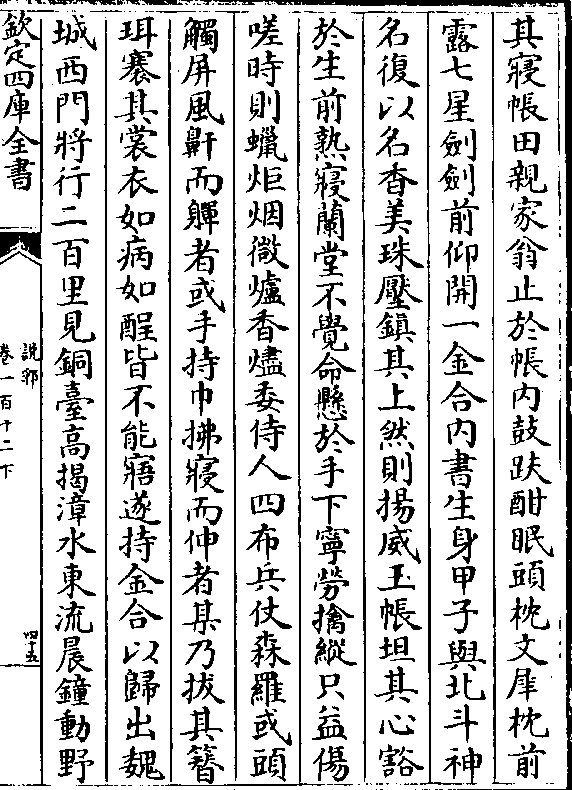 其寢帳田親家翁止於帳内鼓趺酣眠頭枕文犀枕前
露七星劍劍前仰開一金合内書生身甲子與北斗神
名復以名香美珠壓鎮其上然則揚威玉帳坦其心豁
於生前熟寢蘭堂不覺命懸於手下寧勞擒縱只益傷
嗟時則蠟炬烟微爐香燼委侍人四布兵仗森羅或頭
觸屏風鼾而軃者或手持巾拂寢而伸者某乃拔其簪
珥褰其裳衣如病如酲皆不能寤遂持金合以歸出魏
城西門將行二百里見銅臺高揭漳水東流晨鐘動野
欽定四庫全書
說郛
卷一百十二下
四十五